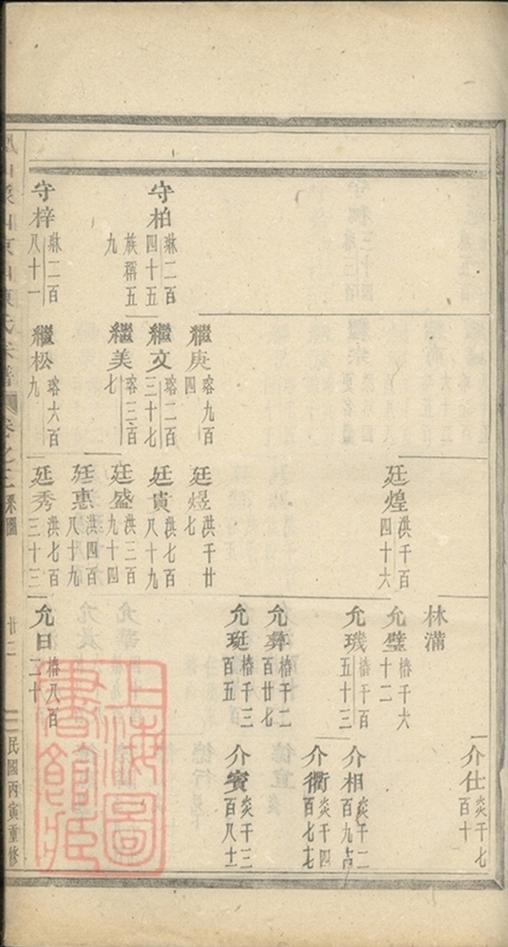 守柏 琳二百四十五
族稱五九
守梓 琳二百八十一
繼庚 瑢九百四
繼文 瑢二百三十七
繼美 瑢三百七
繼松 瑢六百九
廷煌 洪千百四十六
廷煜 洪千廿七
廷寅 洪七百八十九
廷盛 洪三百九十四
廷惠 洪四百七十九
廷秀 洪七百三十三
林滿
允璧 椿千六十二
允璣 椿千百五十三
允彝 椿千二百廿七
允珽 椿千二百五
允日 椿八百三十
介仕 炎千七百十
介相 炎千二百九
介衢 炎千四百七七
介賓 炎千三百八十
氏宗譜
卷之
系圖
廿二
民國丙寅重修
上海圖書館藏